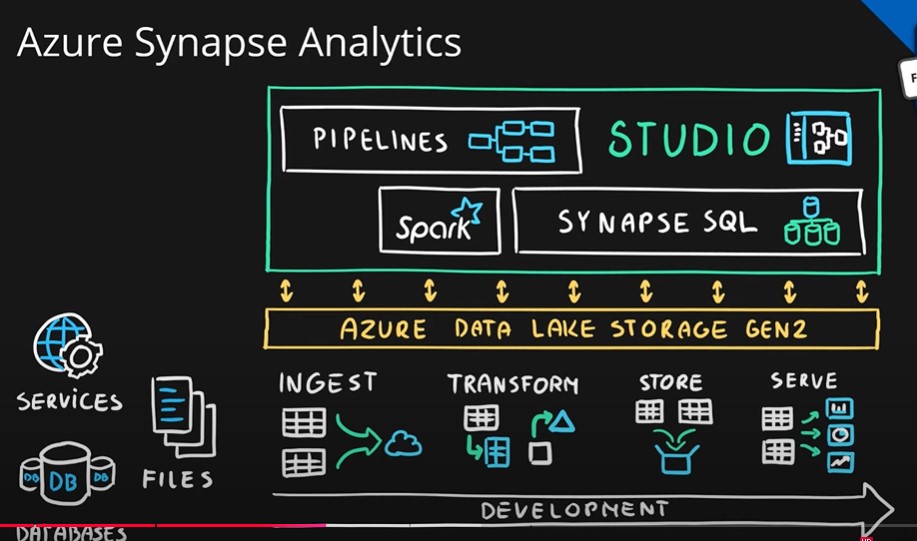 Azure Synapse Analytics
PIPELINES
STUDIO
Spark
SYNAPSE SQL
AZURE DATA LAKE STORAGE GEN2
SERVICES
DB DB DB
DATABASES
FILES
INGEST
TRANSFORM
STORE
SERVE
DEVELOPMENT